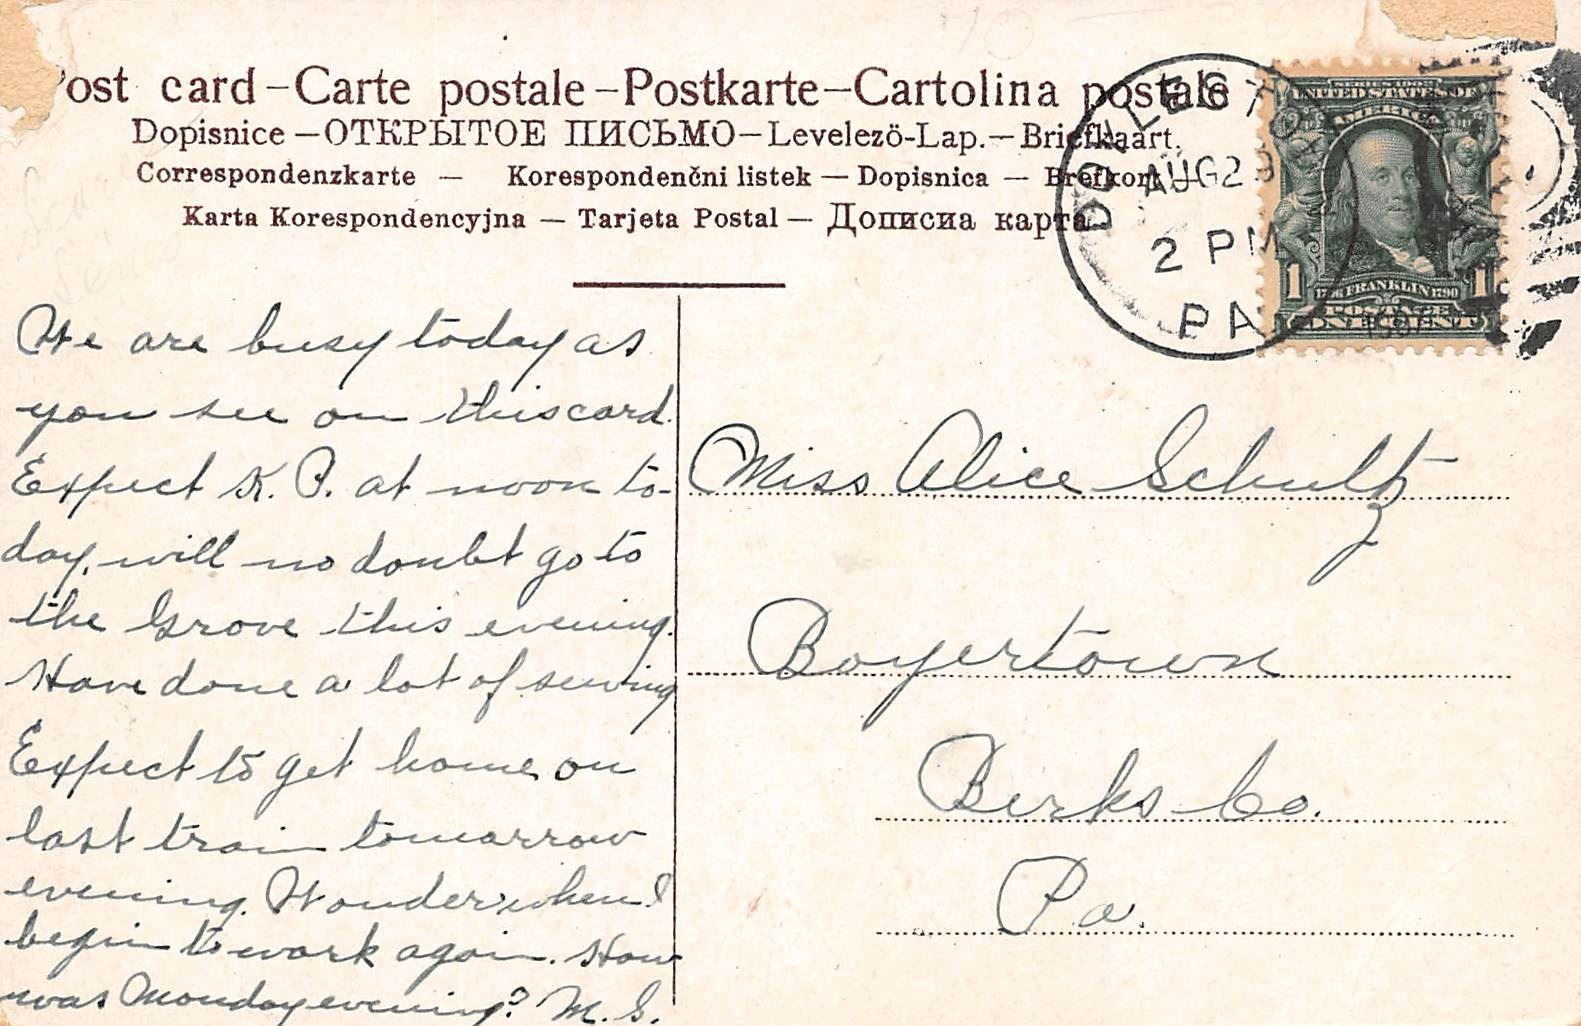 Post card – Carte postale – Postkarte – Cartolina postale
Dopisnice – ОТКРЫТОЕ ПИСЬМО – Levelezö-Lap. – Briefkaart.
Correspondenzkarte – Korespondenčni listek – Dopisnica – Brefkort –
Karta Korespondencyjna – Tarjeta Postal – Дописна карта
DOYLESTO
AUG 28
2 PM
PA
UNITED STATES OF
AMERICA
1 1
1706 FRANKLIN 1790
POSTAGE
ONE CENT
We are busy today as
you see on this card.
Expect K. P. at noon to-
day, will no doubt go to
the Grove this evening.
Have done a lot of sewing
Expect to get home on
last train tomorrow
evening. Wonder when I
begin to work again. How
was Monday evening? M. S.
Miss Alice Schultz
Boyertown
Berks Co.
Pa.